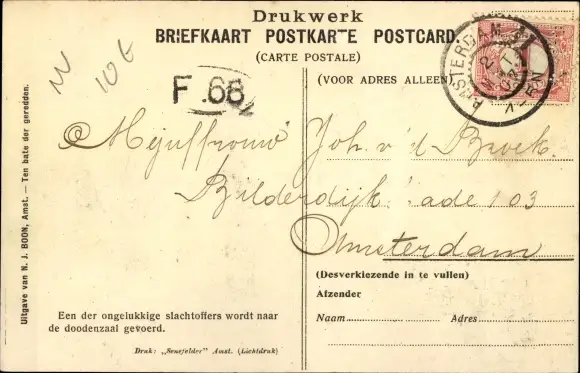 Drukwerk
BRIEFKAART POSTKARTE POSTCARD.
(CARTE POSTALE)
(VOOR ADRES ALLEEN)
AMSTERDAM
F.68
N
106
Mejuffrouw Joh. v 'd Broek.
Bilderdijk: ade 103
Amsterdam
(Desverkiezende in te vullen)
Afzender
Naam Adres
Een der ongelukkige slachtoffers wordt naar
de doodenzaal gevoerd.
Druk: „Senefelder" Amst. (Lichtdruk)
Uitgave van N. J. BOON, Amst. — Ten bate der geredden.